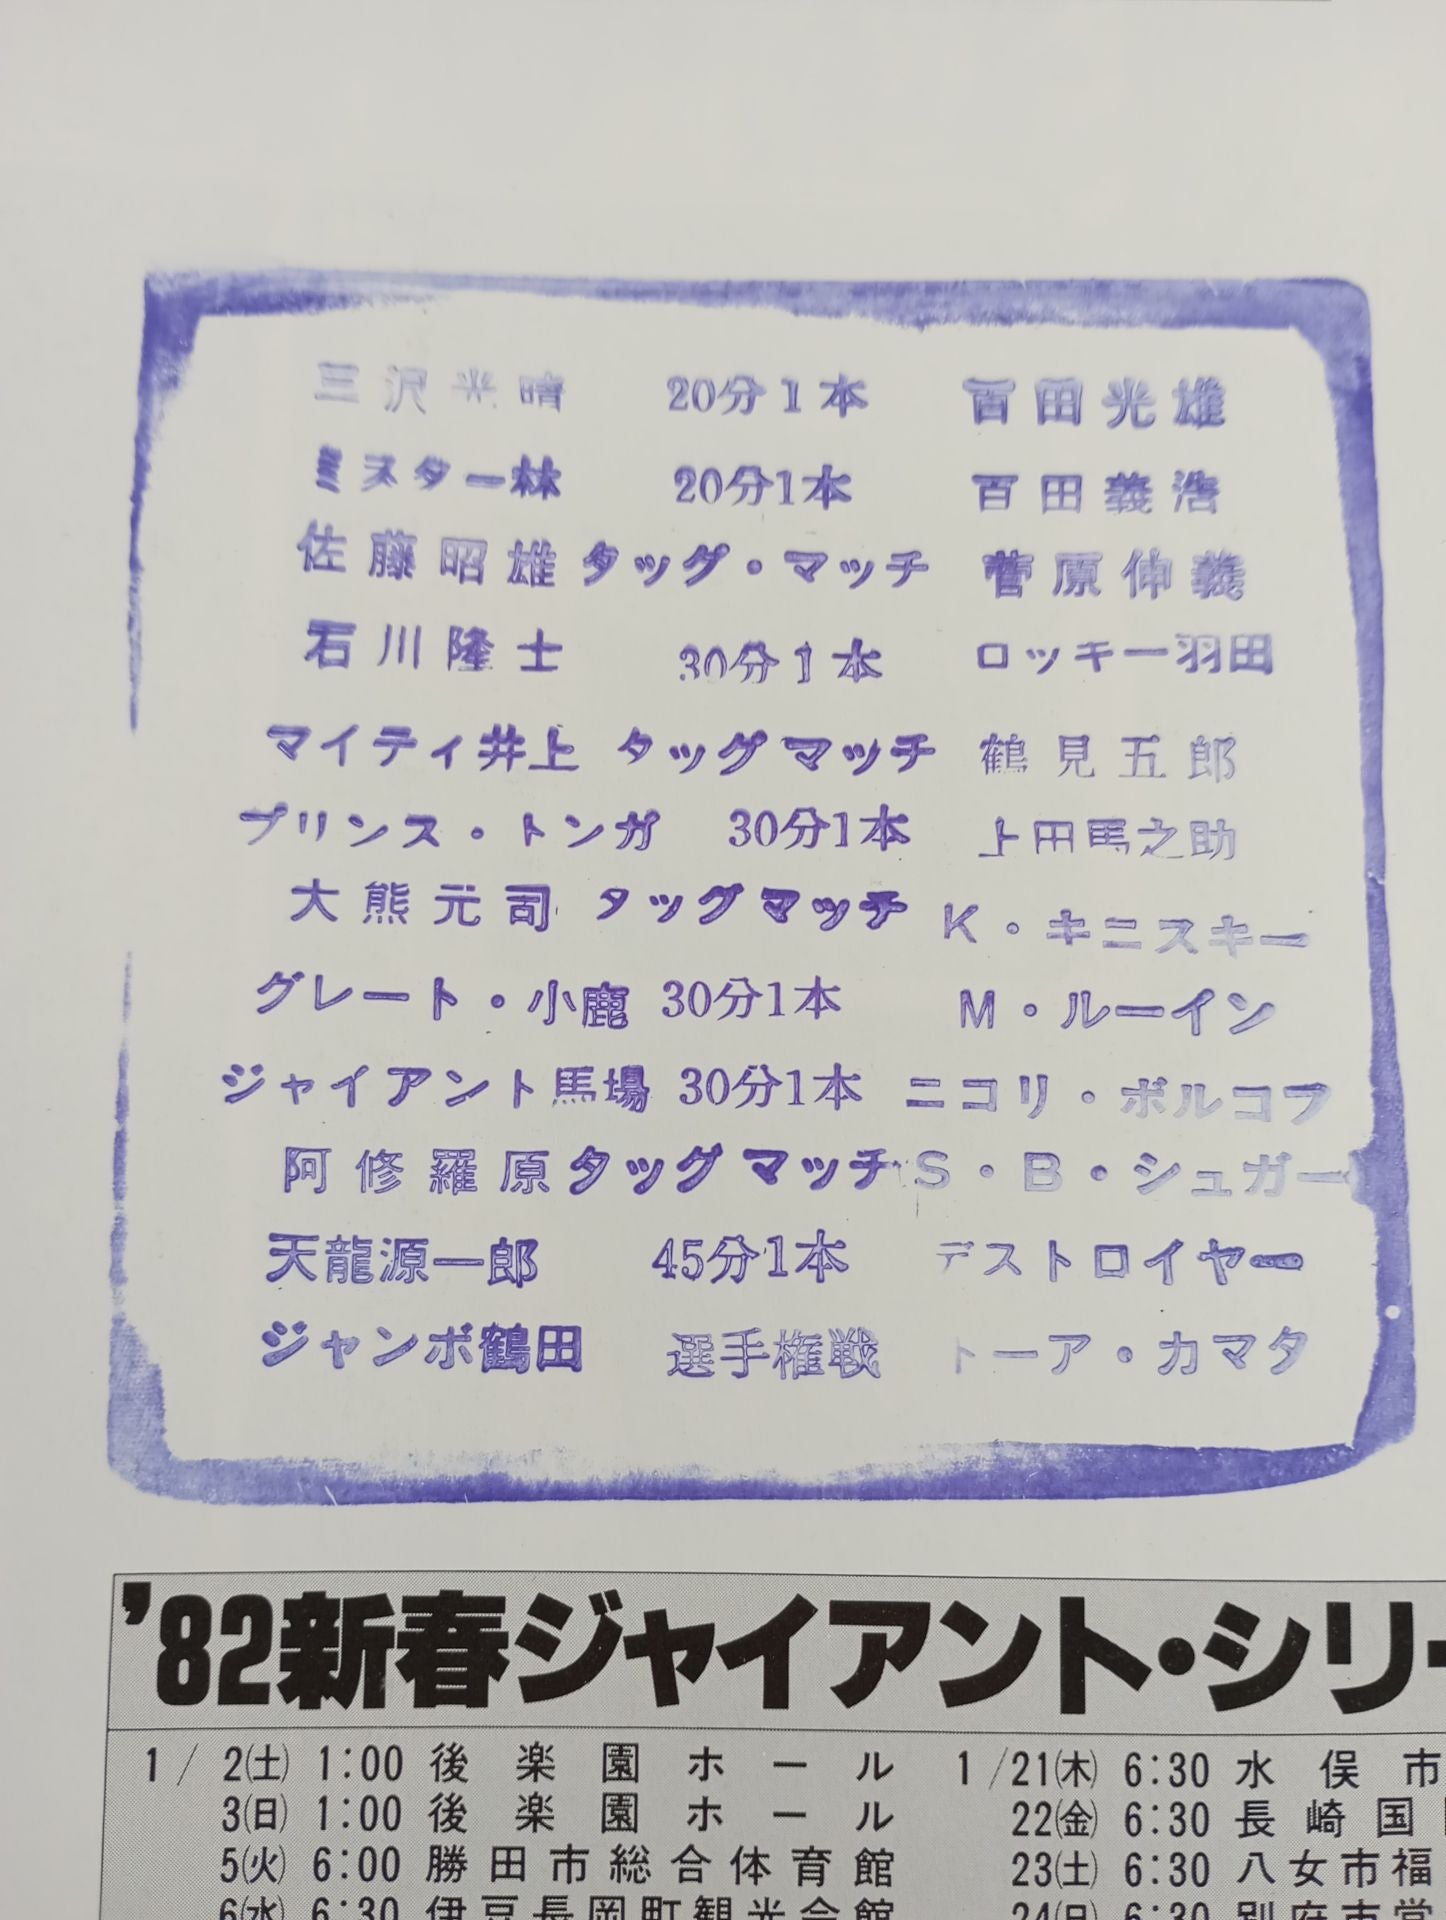 三沢光晴 20分1本 百田光雄
ミスター林 20分1本 百田義浩
佐藤昭雄 タッグ・マッチ 菅原伸義
石川隆士 30分1本 ロッキー羽田
マイティ井上 タッグマッチ 鶴見五郎
プリンス・トンガ 30分1本 上田馬之助
大熊元司 タッグマッチ K・キニスキー
グレート・小鹿 30分1本 M・ルーイン
ジャイアント馬場 30分1本 ニコリ・ボルコフ
阿修羅原 タッグマッチ S・B・シュガー
天龍源一郎 45分1本 デストロイヤー
ジャンボ鶴田 選手権戦 トーア・カマタ
'82新春ジャイアント・シリー
1/2(土) 1:00 後楽園ホール 1/21(木) 6:30 水俣市
3(日) 1:00 後楽園ホール 22(金) 6:30 長崎国
5(火) 6:00 勝田市総合体育館 23(土) 6:30 八女市福
6(水) 6:30 伊豆長岡町観光会館 24(日) 6:30 別府市営